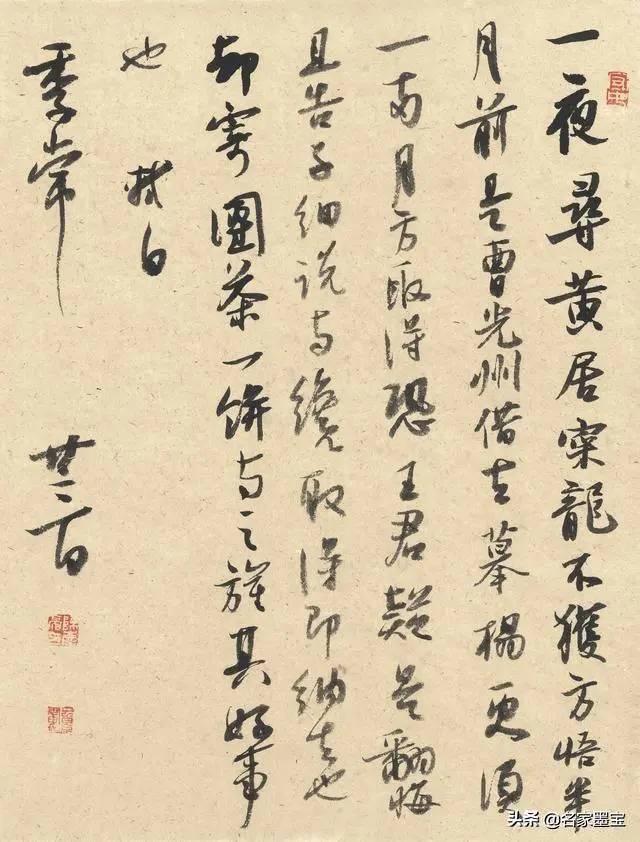 一夜尋黃居寀龍不獲方悟半
月前是曹光州借去摹搨更須
一兩月方取得恐王君疑是翻悔
且告子細說與纔取得即納去也
却寄團茶一餅與之旌其好事
也 軾白
季常 廿三日
头条 @名家墨宝